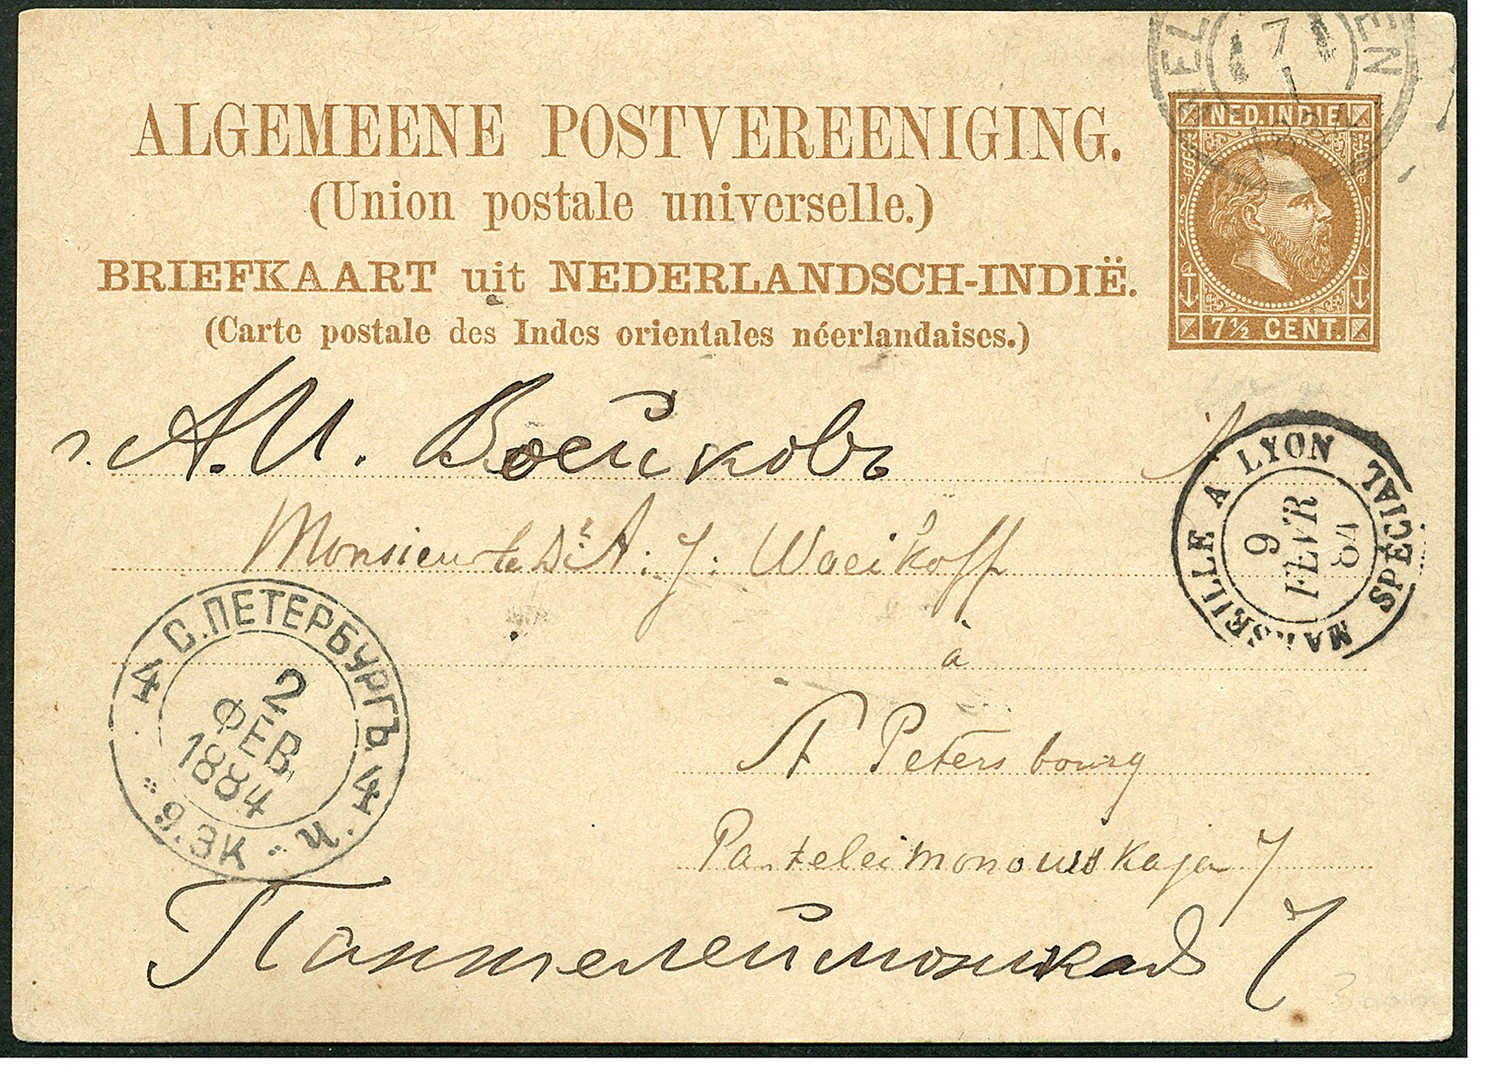 ALGEMEENE POSTVEREENIGING.
(Union postale universelle.)
BRIEFKAART uit NEDERLANDSCH-INDIË.
(Carte postale des Indes orientales néerlandaises.)
NED. INDIE
7½ CENT.
7
1
г. А.И. Воейковъ
Monsieur le Dr. A. J: Woeikoff
à
St Petersbourg
Panteleimonowskaja 7
Пантелеймонская 7
MARSEILLE A LYON SPÉCIAL
9
FEVR
84
С.ПЕТЕРБУРГЪ
4 4
2
ФЕВ.
1884
9.ЭК ч.